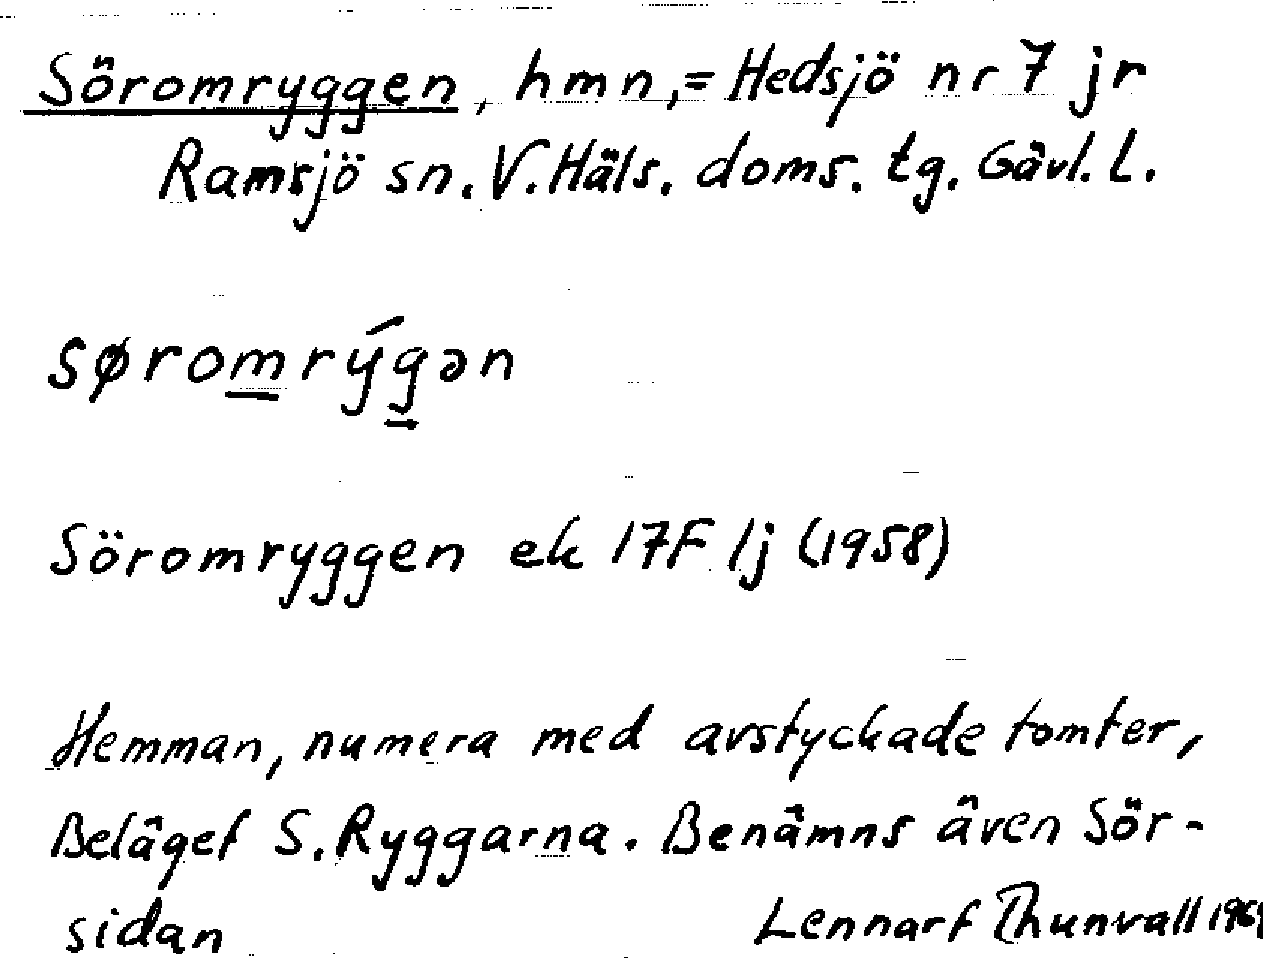 Söromryggen, hmn, = Hedsjö nr 7 jr
Ramsjö sn. V. Häls. doms. tg. Gävl. L.
søromrýgən
Söromryggen ek 17F lj (1958)
Hemman, numera med avstyckade tomter,
Beläget S. Ryggarna. Benämns även Sör-
sidan
Lennart Thunvall